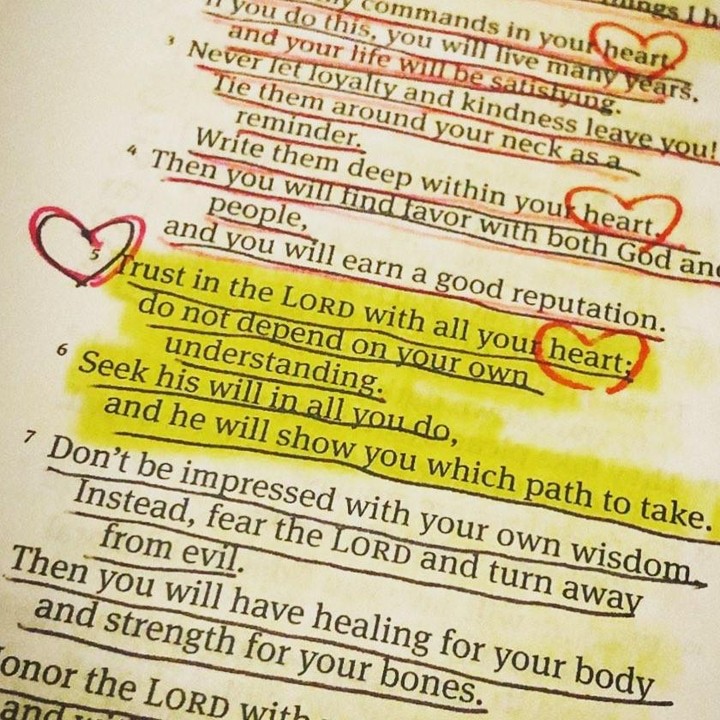 ings I h
my commands in your heart.
If you do this, you will live many years,
and your life will be satisfying.
3 Never let loyalty and kindness leave you!
Tie them around your neck as a
reminder.
Write them deep within your heart.
4 Then you will find favor with both God and
people,
and you will earn a good reputation.
5 Trust in the LORD with all your heart;
do not depend on your own
understanding.
6 Seek his will in all you do,
and he will show you which path to take.
7 Don't be impressed with your own wisdom.
Instead, fear the LORD and turn away
from evil.
Then you will have healing for your body
and strength for your bones.
onor the LORD with
and